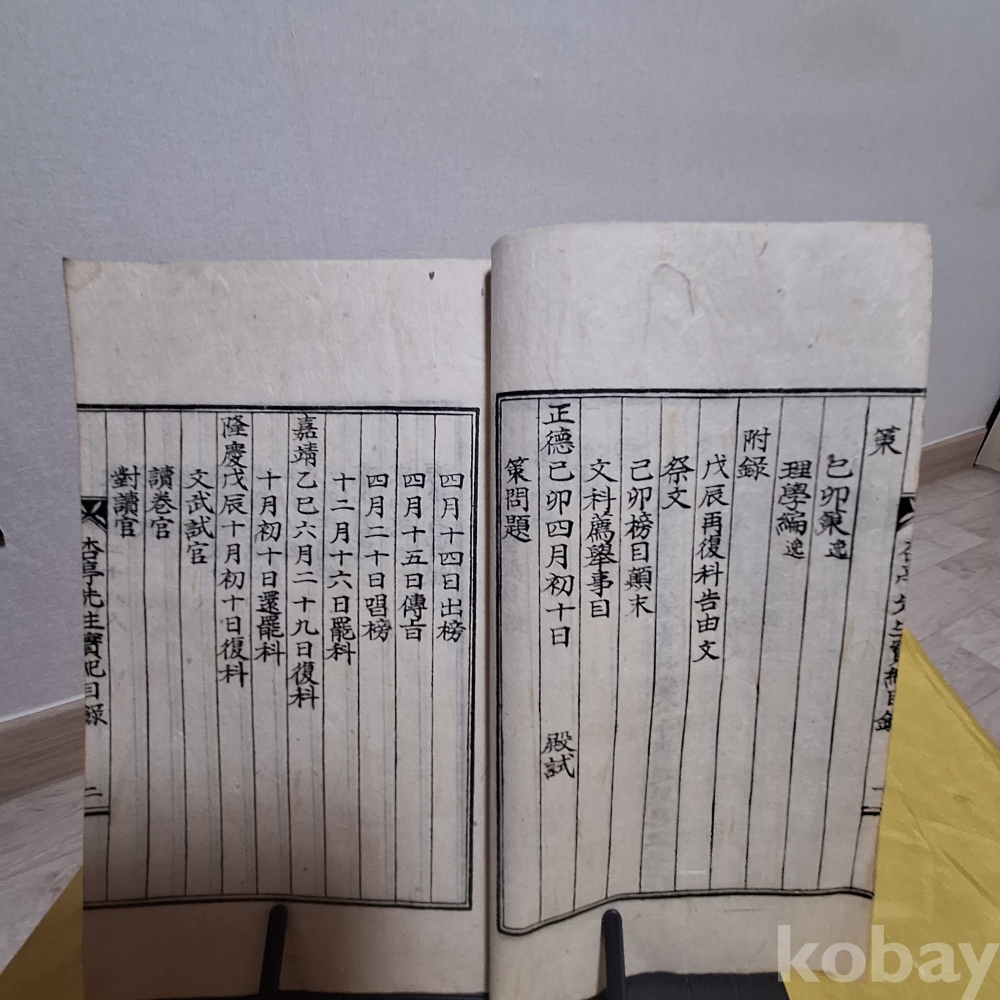 策
己卯策逸
理學編逸
附錄
戊辰再復科告由文
祭文
己卯榜目顛末
文科薦舉事目
正德己卯四月初十日 殿試
策問題
四月十四日出榜
四月十五日傳旨
四月二十日唱榜
十二月十六日罷科
嘉靖乙巳六月二十九日復科
十月初十日還罷科
隆慶戊辰十月初十日復科
文武試官
讀卷官
對讀官
先生實紀目錄 二
kobay